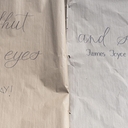 that
eyes
and s
James Joyce